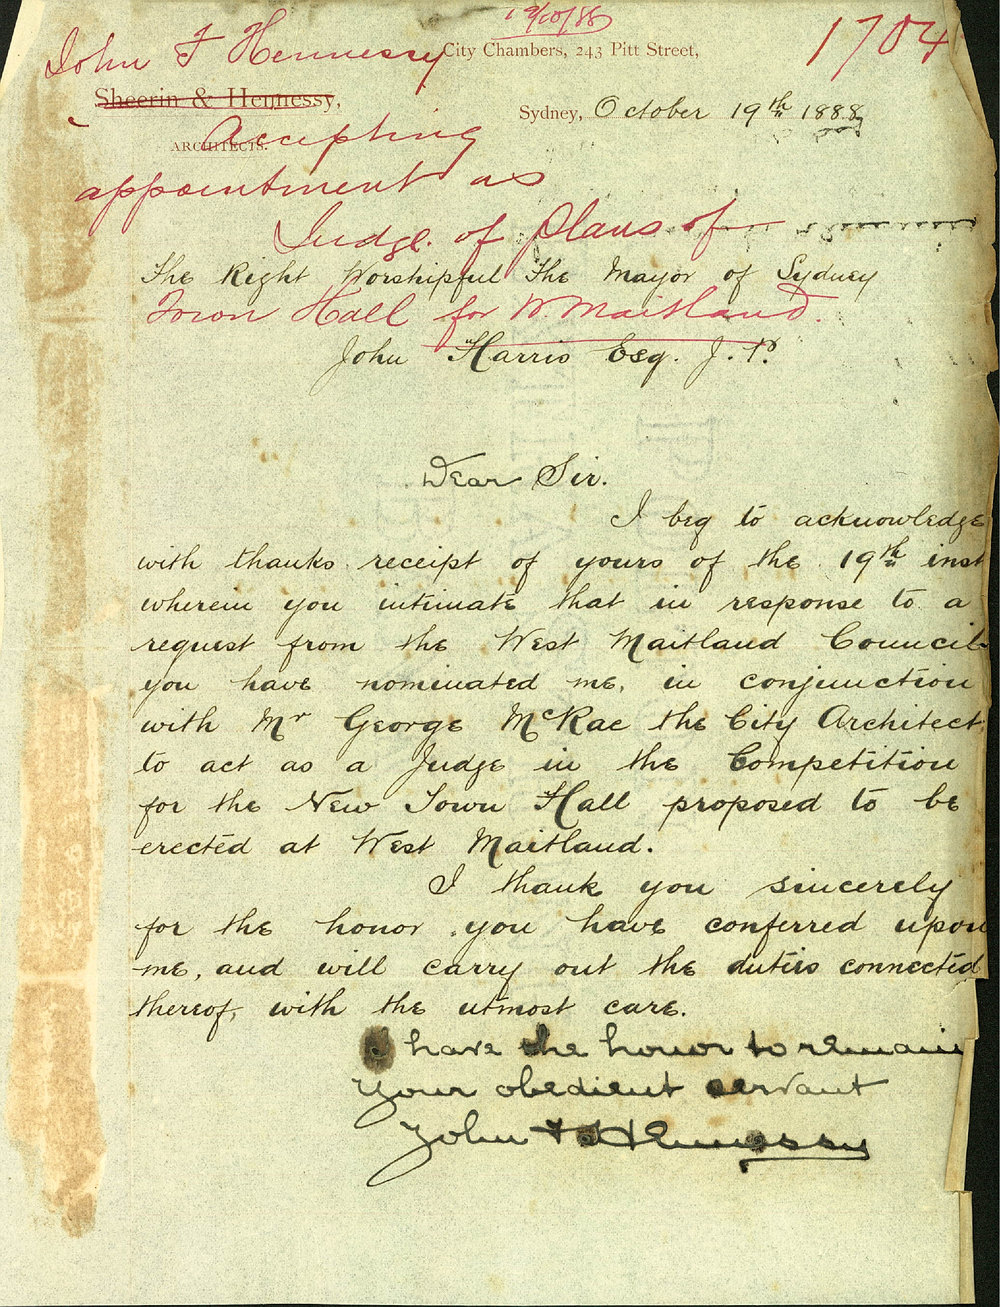 19/10/88
1704
John F Hennessy
City Chambers, 243 Pitt Street,
Sheerin & Hennessy,
Sydney, October 19th 1888
ARCHITECTS.
Accepting
appointment as
Judge of plans of
The Right Worshipful The Mayor of Sydney
Town Hall for W. Maitland.
John Harris Esq. J. P.
Dear Sir.
I beg to acknowledge
with thanks receipt of yours of the 19th inst
wherein you intimate that in response to a
request from the West Maitland Council
you have nominated me, in conjunction
with Mr George McRae the City Architect,
to act as a Judge in the Competition
for the New Town Hall proposed to be
erected at West Maitland.
I thank you sincerely
for the honor you have conferred upon
me, and will carry out the duties connected
thereof, with the utmost care.
I have the honor to remain
Your obedient servant
John F Hennessy